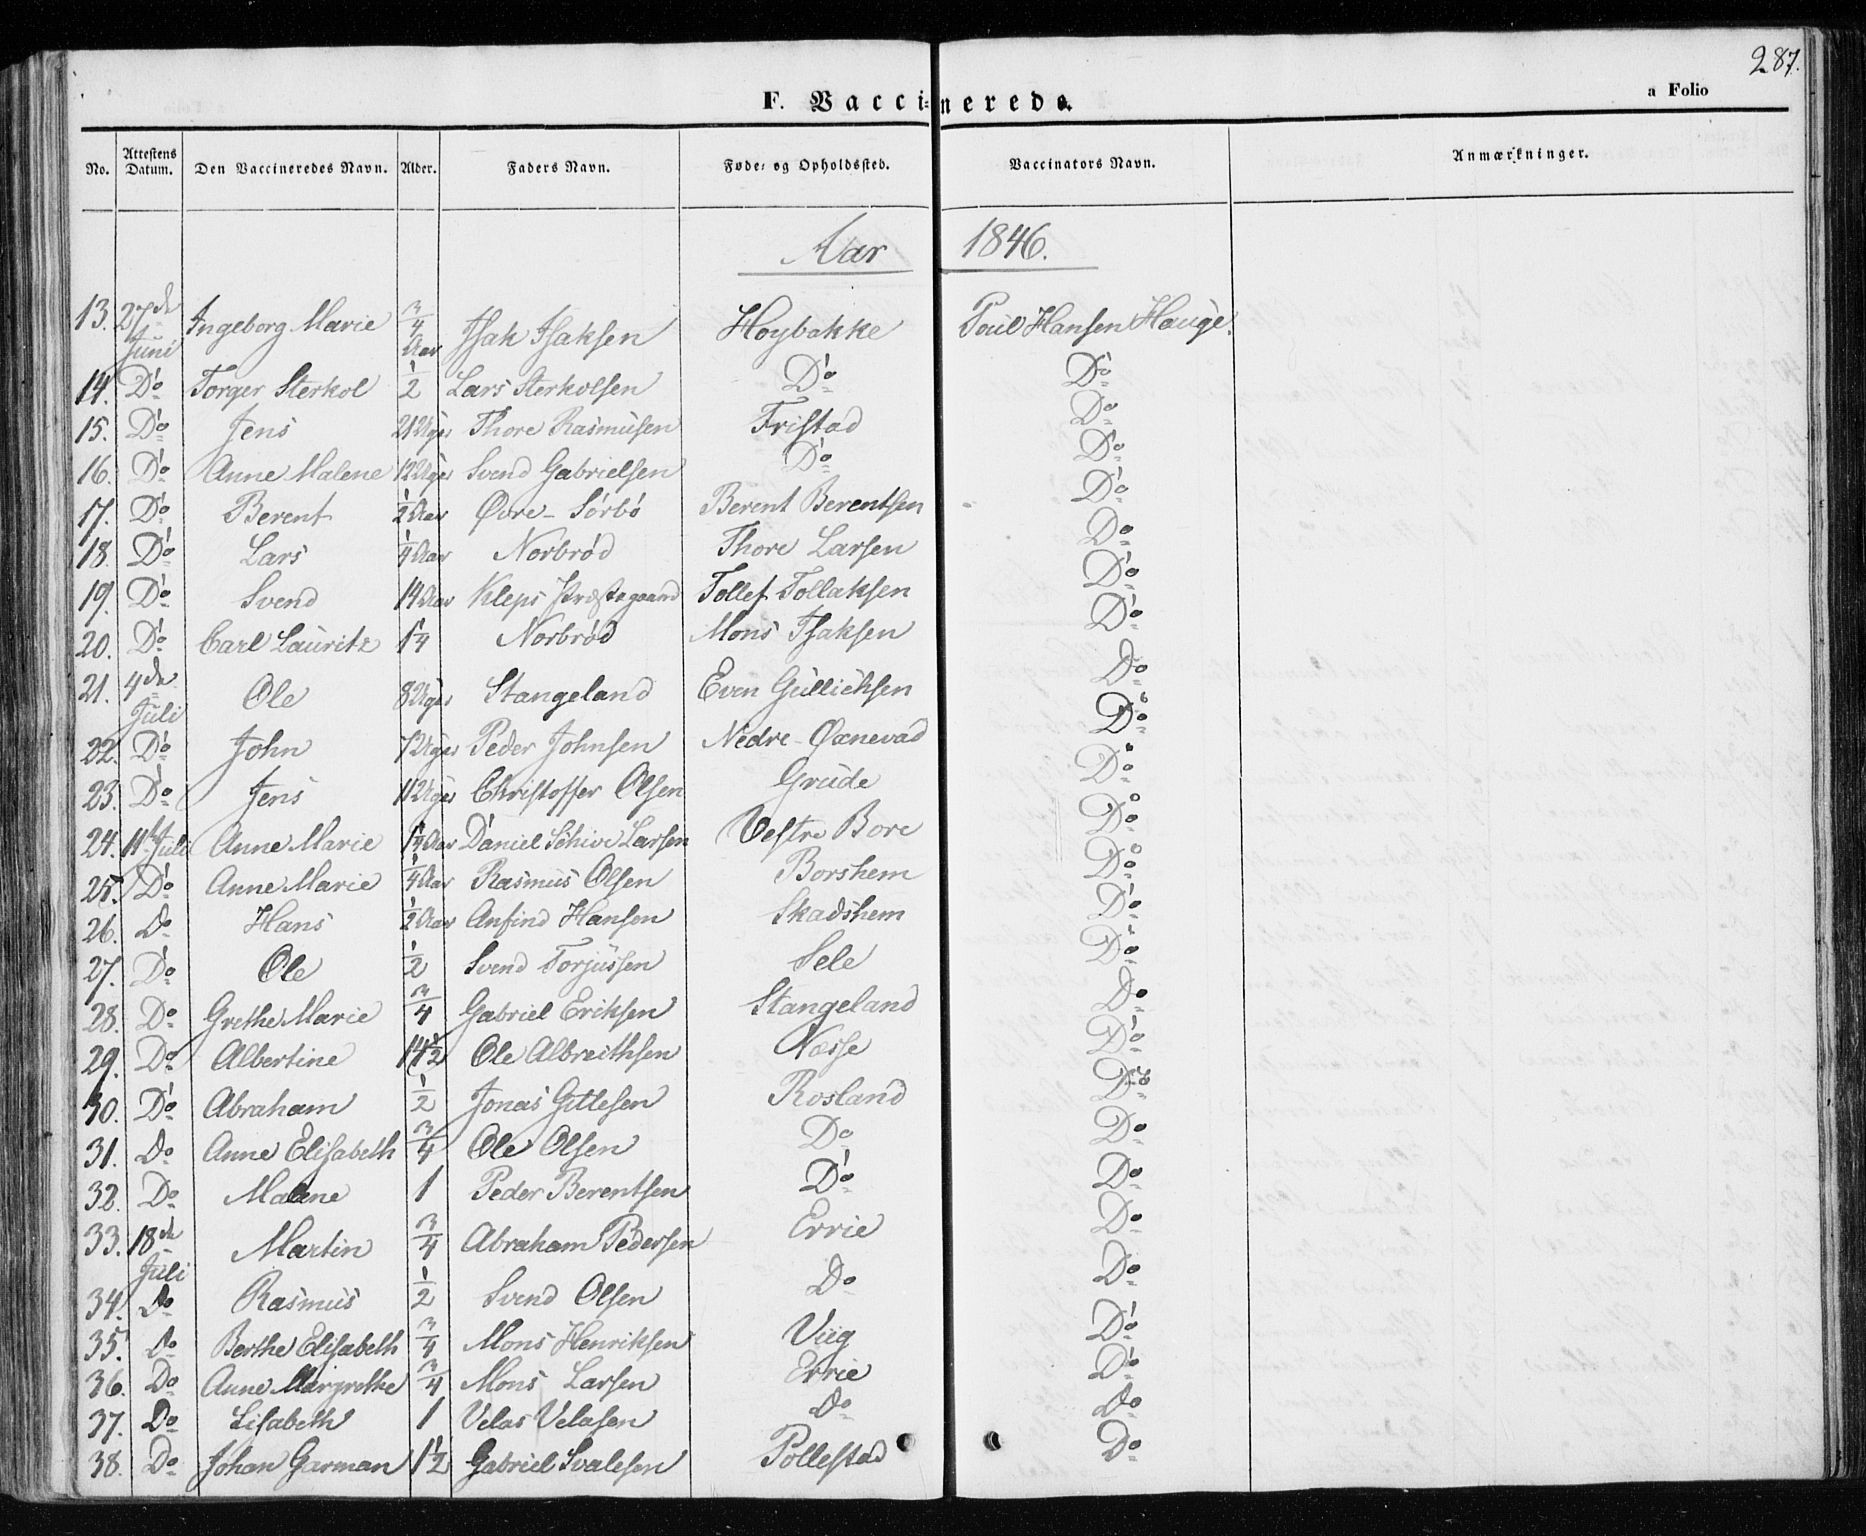 287.
F. Vaccinerede.
a Folio
No. Attestens Datum. Den Vaccineredes Navn. Alder. Faders Navn. Føde- og Opholdssted. Vaccinators Navn. Anmærkninger.
Aar 1846.
13. 27de Juni Ingeborg Marie 3/4 Aar Isak Isaksen Høybakke Poul Hansen Hauge.
14. Do Torger Sterkol 1/2 Lars Sterkolsen Do Do
15. Do Jens 21 Uger Thore Rasmusen Fristad Do
16. Do Anne Malene 12 Uger Svend Gabrielsen Do Do
17. Do Berent 1/2 Aar Øvre-Sørbø Berent Berentsen Do
18. Do Lars 1/4 Aar Norbrød Thore Larsen Do
19. Do Svend 14 Aar Kleps Præstegaard Tollef Tollaksen Do
20. Do Carl Lauritz 1 1/4 Norbrød Mons Isaksen Do
21. 4de Juli Ole 8 Uger Stangeland Even Gullichsen Do
22. Do John 7 Uger Peder Johnsen Nedre-Øxnevad Do
23. Do Jens 11 Uger Christoffer Olsen Grude Do
24. 11te Juli Anne Marie 1 1/4 Aar Daniel Schive Larsen Vestre Bore Do
25. Do Anne Marie 1/4 Aar Rasmus Olsen Borshem Do
26. Do Hans 1/2 Aar Anfind Hansen Skadshem Do
27. Do Ole 1/2 Svend Torjussen Sele Do
28. Do Grethe Marie 3/4 Gabriel Eriksen Stangeland Do
29. Do Albertine 14 1/2 Ole Albreithsen Næsse Do
30. Do Abraham 1/2 Jonas Gitlesen Rosland Do
31. Do Anne Elisabeth 3/4 Ole Olsen Do Do
32. Do Malene 1 Peder Berentsen Do Do
33. 18de Juli Martin 3/4 Abraham Pedersen Errie Do
34. Do Rasmus 1/2 Svend Olsen Do Do
35. Do Berthe Elisabeth 3/4 Mons Henriksen Viig Do
36. Do Anne Margrethe 3/4 Mons Larsen Errie Do
37. Do Lisabeth 1 Velas Velasen Do Do
38. Do Johan Garman 1 1/2 Gabriel Svalesen Pollestad Do